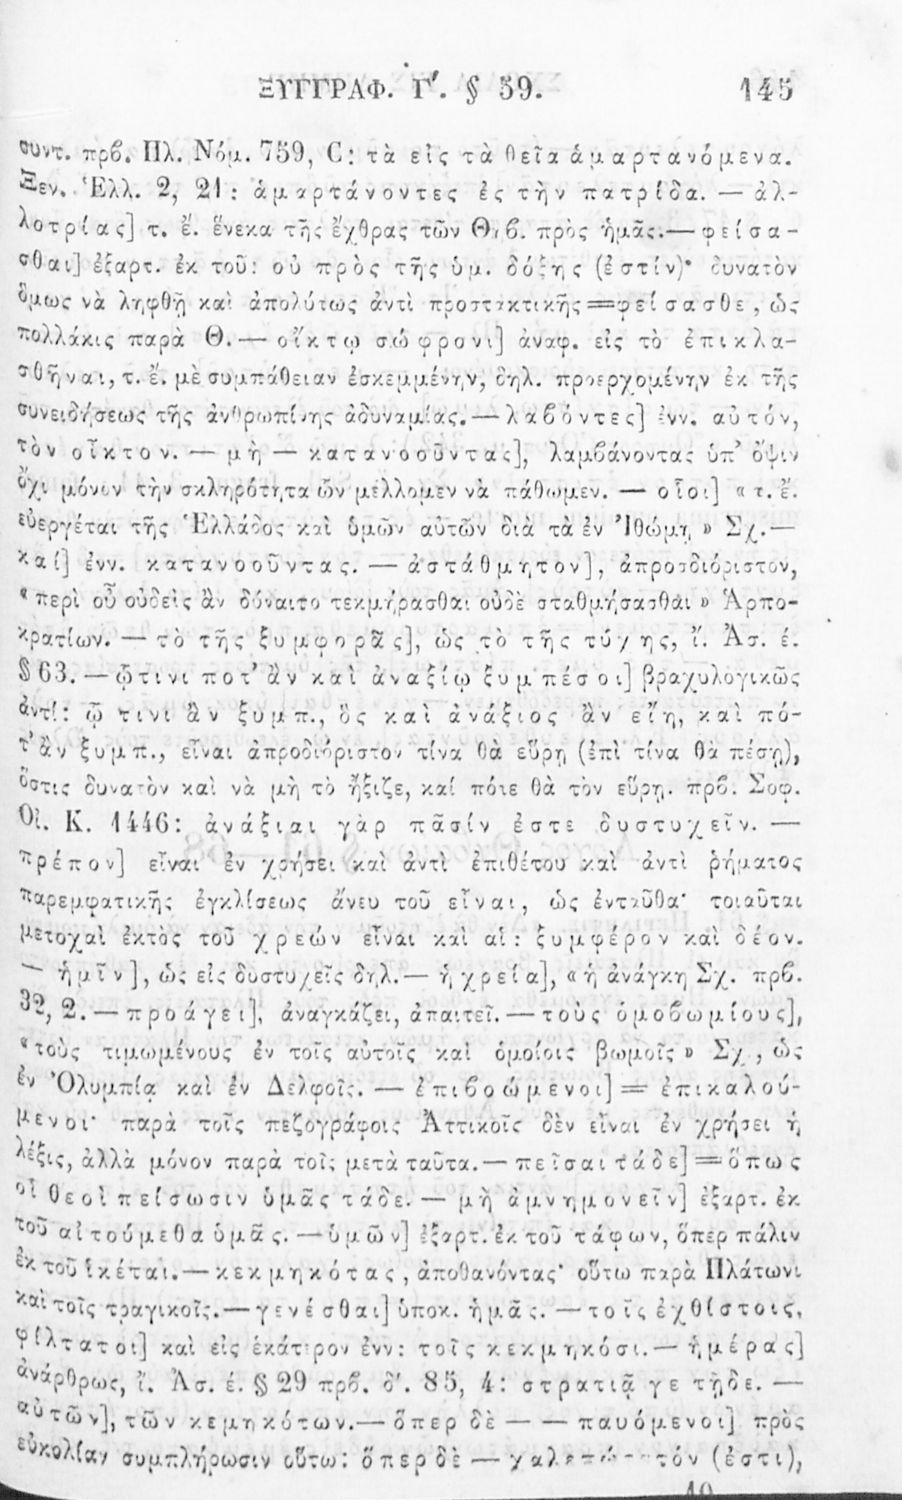 ΞΥΓΓΡΑΦ. Γ΄. § 59. 145
συντ. πρβ. Πλ. Νόμ. 759, C: τὰ εἰς τὰ θεῖα ἁμαρτανόμενα.
Ξεν. Ἑλλ. 2, 21: ἁμαρτάνοντες ἐς τὴν πατρίδα. — ἀλ-
λοτρίας] τ. ἔ. ἕνεκα τῆς ἔχθρας τῶν Θηβ. πρὸς ἡμᾶς.— φείσα-
σθαι] ἐξαρτ. ἐκ τοῦ: οὐ πρὸς τῆς ὑμ. δόξης (ἐστίν)· δυνατὸν
ὅμως νὰ ληφθῇ καὶ ἀπολύτως ἀντὶ προστακτικῆς = φείσασθε, ὡς
πολλάκις παρὰ Θ.— οἴκτῳ σώφρονι] ἀναφ. εἰς τὸ ἐπικλα-
σθῆναι, τ. ἔ. μὲ συμπάθειαν ἐσκεμμένην, δηλ. προερχομένην ἐκ τῆς
συνειδήσεως τῆς ἀνθρωπίνης ἀδυναμίας.— λαβόντες] ἐνν. αὐτόν,
τὸν οἶκτον. — μὴ — κατανοοῦντας], λαμβάνοντας ὑπ' ὄψιν
ὄχι μόνον τὴν σκληρότητα ὧν μέλλομεν νὰ πάθωμεν. — οἷοι] « τ. ἔ.
εὐεργέται τῆς Ἑλλάδος καὶ ὑμῶν αὐτῶν διὰ τὰ ἐν Ἰθώμῃ » Σχ.—
καί] ἐνν. κατανοοῦντας. — ἀστάθμητον], ἀπροσδιόριστον,
« περὶ οὗ οὐδεὶς ἂν δύναιτο τεκμήρασθαι οὐδὲ σταθμήσασθαι » Ἁρπο-
κρατίων. — τὸ τῆς ξυμφορᾶς], ὡς τὸ τῆς τύχης, ἴ. Ἀσ. ἐ.
§ 63. — ᾧτινι ποτ' ἂν καὶ ἀναξίῳ ξυμπέσοι] βραχυλογικῶς
ἀντὶ: ᾧ τινι ἂν ξυμπ., ὃς καὶ ἀνάξιος ἂν εἴη, καὶ πό-
τ' ἂν ξυμπ., εἶναι ἀπροδιόριστον τίνα θὰ εὕρῃ (ἐπὶ τίνα θὰ πέσῃ),
ὅστις δυνατὸν καὶ νὰ μὴ τὸ ἤξιζε, καί πότε θὰ τὸν εὕρῃ. πρβ. Σοφ.
Οἰ. Κ. 1446: ἀνάξιαι γὰρ πᾶσίν ἐστε δυστυχεῖν. —
πρέπον] εἶναι ἐν χρήσει καὶ ἀντὶ ἐπιθέτου καὶ ἀντὶ ῥήματος
παρεμφατικῆς ἐγκλίσεως ἄνευ τοῦ εἶναι, ὡς ἐνταῦθα· τοιαῦται
μετοχαὶ ἐκτὸς τοῦ χρεών εἶναι καὶ αἱ: ξυμφέρον καὶ δέον.
— ἡμῖν], ὡς εἰς δυστυχεῖς δηλ.— ἡ χρεία], « ἡ ἀνάγκη Σχ. πρβ.
32, 2. — προάγει], ἀναγκάζει, ἀπαιτεῖ. — τοὺς ὁμοβωμίους],
« τοὺς τιμωμένους ἐν τοῖς αὐτοῖς καὶ ὁμοίοις βωμοῖς » Σχ, ὡς
ἐν Ὀλυμπίᾳ καὶ ἐν Δελφοῖς. — ἐπιβοώμενοι] = ἐπικαλού-
μενοι· παρὰ τοῖς πεζογράφοις Ἀττικοῖς δὲν εἶναι ἐν χρήσει ἡ
λέξις, ἀλλὰ μόνον παρὰ τοῖς μετὰ ταῦτα.— πεῖσαι τάδε] = ὅπως
οἱ θεοὶ πείσωσιν ὑμᾶς τάδε. — μὴ ἀμνημονεῖν] ἐξαρτ. ἐκ
τοῦ αἰτούμεθα ὑμᾶς. — ὑμῶν] ἐξαρτ. ἐκ τοῦ τάφων, ὅπερ πάλιν
ἐκ τοῦ ἱκέται. — κεκμηκότας, ἀποθανόντας· οὕτω παρὰ Πλάτωνι
καὶ τοῖς τραγικοῖς.— γενέσθαι] ὑποκ. ἡμᾶς. — τοῖς ἐχθίστοις,
φίλτατοι] καὶ εἰς ἑκάτερον ἐνν: τοῖς κεκμηκόσι.— ἡμέρας]
ἀνάρθρως, ἴ. Ἀσ. ἐ. § 29 πρβ. δ'. 85, 4: στρατιᾷ γε τῇδε. —
αὐτῶν], τῶν κεμηκότων.— ὅπερ δὲ — — παυόμενοι] πρὸς
εὐκολίαν συμπλήρωσιν οὕτω: ὅπερ δὲ — (ἐστι),
10